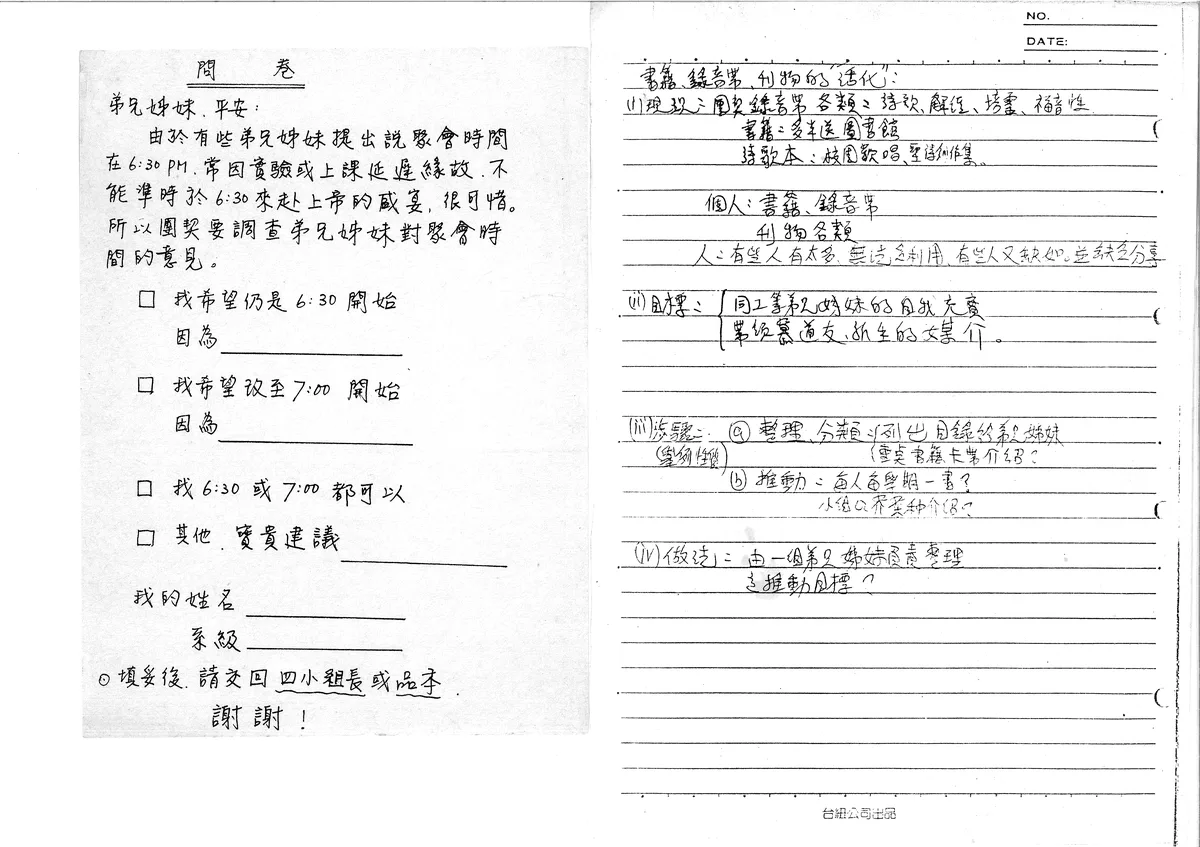 問 卷
弟兄姊妹、平安：
由於有些弟兄姊妹提出說聚會時間
在6:30 PM, 常因實驗或上課延遲緣故, 不
能準時於6:30來赴上帝的盛宴, 很可惜。
所以團契要調查弟兄姊妹對聚會時
間的意見。
□ 我希望仍是6:30開始
因為
□ 我希望改至7:00 開始
因為
□ 我6:30 或 7:00 都可以
□ 其他、寶貴建議
我的姓名
系級
⊙ 填妥後, 請交回 四小組長或品本.
謝謝！
NO.
DATE:
書籍、錄音帶、刊物的"活化"：
(i) 現況：團契錄音帶 各類：詩歌、解經、培靈、福音性
書籍：多半送圖書館
詩歌本：校園歡唱、聖詩創作集。
個人：書籍、錄音帶
刊物各類
人：有些人有太多, 無法利用, 有些人又缺如。並缺乏分享
(ii) 目標：{ 同工等弟兄姊妹的自我充實
帶領慕道友、新生的媒介。
(iii) 步驟： ⓐ 整理、分類：列出目錄給弟兄姊妹
書籍卡帶介紹？
ⓑ 推動：每人每學期一書？
小組介紹？
(iv) 做法：由一組弟兄姊妹負責整理
推動目標？
台紐公司出品